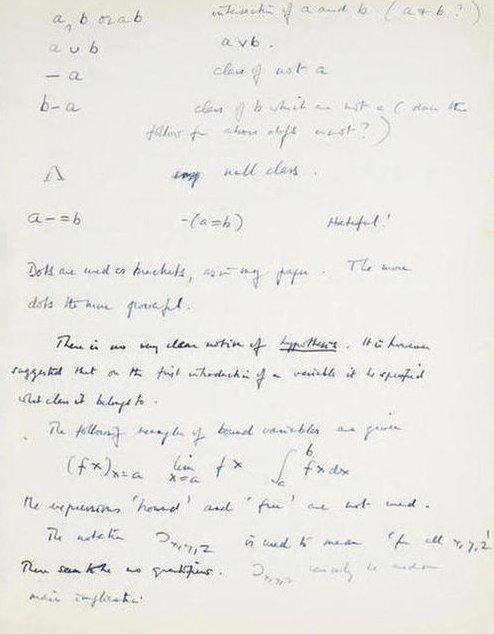 a ∩ b or ab   intersection of a and b ( a & b ? )
a ∪ b   a v b .
– a   class of not a
b – a   class of b which are not a ( does this
follow from above defs ... ? )
Λ   null class .
a – = b   –(a = b)   Hateful!
Dots are used as brackets, as in my paper . The more
dots the more powerful .
There is no very clear notion of hypothesis . It is however
suggested that on the first introduction of a variable it be specified
what class it belongs to .
The following examples of bound variables are given
(fx)x=a   lim x=a fx   ∫ab fx dx
The expressions 'bound' and 'free' are not used .
The notation ⊃x,y,z is used to mean 'for all x, y, z'
There seem to be no quantifiers . ⊃x,y,z can only be used on
main implication